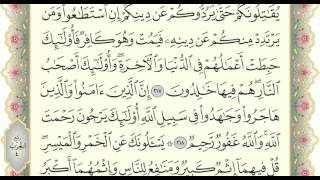 يُقَٰتِلُونَكُمْ حَتَّىٰ يَرُدُّوكُمْ عَن دِينِكُمْ إِنِ ٱسْتَطَٰعُوا۟ وَمَن
يَرْتَدِدْ مِنكُمْ عَن دِينِهِۦ فَيَمُتْ وَهُوَ كَافِرٌ فَأُو۟لَٰٓئِكَ
حَبِطَتْ أَعْمَٰلُهُمْ فِى ٱلدُّنْيَا وَٱلْءَاخِرَةِ ۖ وَأُو۟لَٰٓئِكَ أَصْحَٰبُ
ٱلنَّارِ ۖ هُمْ فِيهَا خَٰلِدُونَ ٢١٧ إِنَّ ٱلَّذِينَ ءَامَنُوا۟ وَٱلَّذِينَ
هَاجَرُوا۟ وَجَٰهَدُوا۟ فِى سَبِيلِ ٱللَّهِ أُو۟لَٰٓئِكَ يَرْجُونَ رَحْمَتَ
ٱللَّهِ ۚ وَٱللَّهُ غَفُورٌ رَّحِيمٌ ٢١٨ ۞ يَسْـَٔلُونَكَ عَنِ ٱلْخَمْرِ وَٱلْمَيْسِرِ ۖ
قُلْ فِيهِمَآ إِثْمٌ كَبِيرٌ وَمَنَٰفِعُ لِلنَّاسِ وَإِثْمُهُمَآ أَكْبَرُ